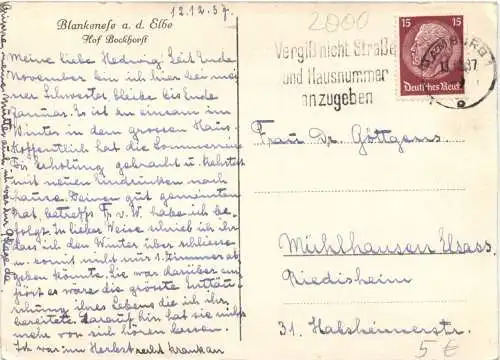 12.12.37.
Blankenese a. d. Elbe
Hof Bockhorst
Meine liebe Hedwig! Seit Ende
November bin ich hier bei mei-
ner Schwester bleibe bis Ende
Januar. Es ist zu einsam im
Winter in dem grossen Haus.
Hoffentlich hat die Sommerreise
Dir Erholung gebracht u. kehrtest
mit neuen Eindrücken nach
Hause. Deinen gut gemeinten
Rat, betreffs Fr. v. W. habe ich be-
folgt. In lieber Weise schrieb ich ihr
dass ich den Winter über schliesse
u. somit nicht nur 1 Zimmer ab
geben könnte. Sie war darüber em-
pört es wäre die grösste Enttäu-
schung ihres Lebens die ich ihr
bereitete. Darauf hin hat sie nichts
mehr von sich hören lassen.
Ich war im Herbst recht krank an
2000
Vergiß nicht Straße
und Hausnummer
anzugeben
15 15
Deutsches Reich
HAMBURG 1
37
Frau Dr. Göttgens
Mühlhausen Elsass.
Riedisheim
31. Habsheimerstr.
5 €